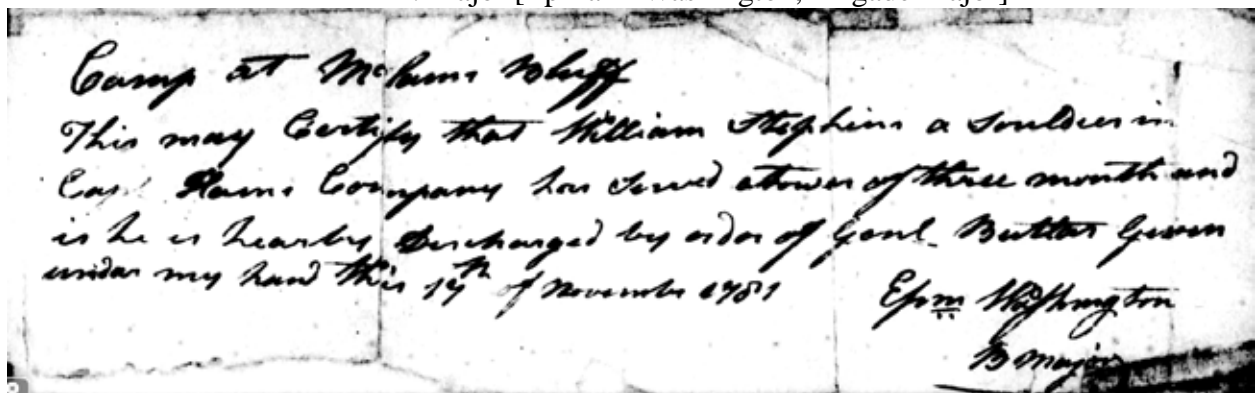 Camp at Mc Bluff
This may Certify that William Stephens a Souldier in
Company has Served atower of three month and
is he is hearby Discharged by order of Genl. Buttler Given
under my hand this 17th of November 1781
Epm Washington
B Major